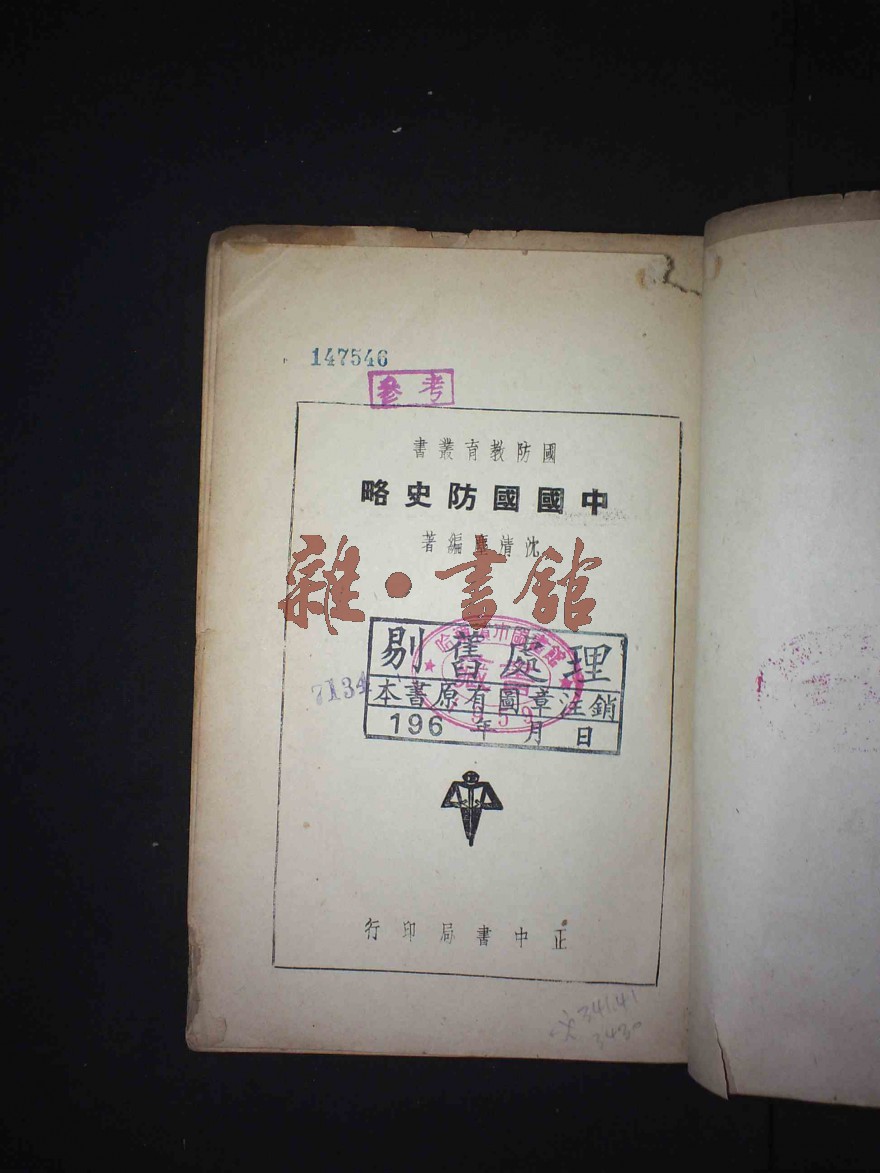 147546
參考
國防教育叢書
中國國防史略
沈清塵編著
雜·書館
剔舊處理
本書原有圖章注銷
196 年 月 日
7134
正中書局印行